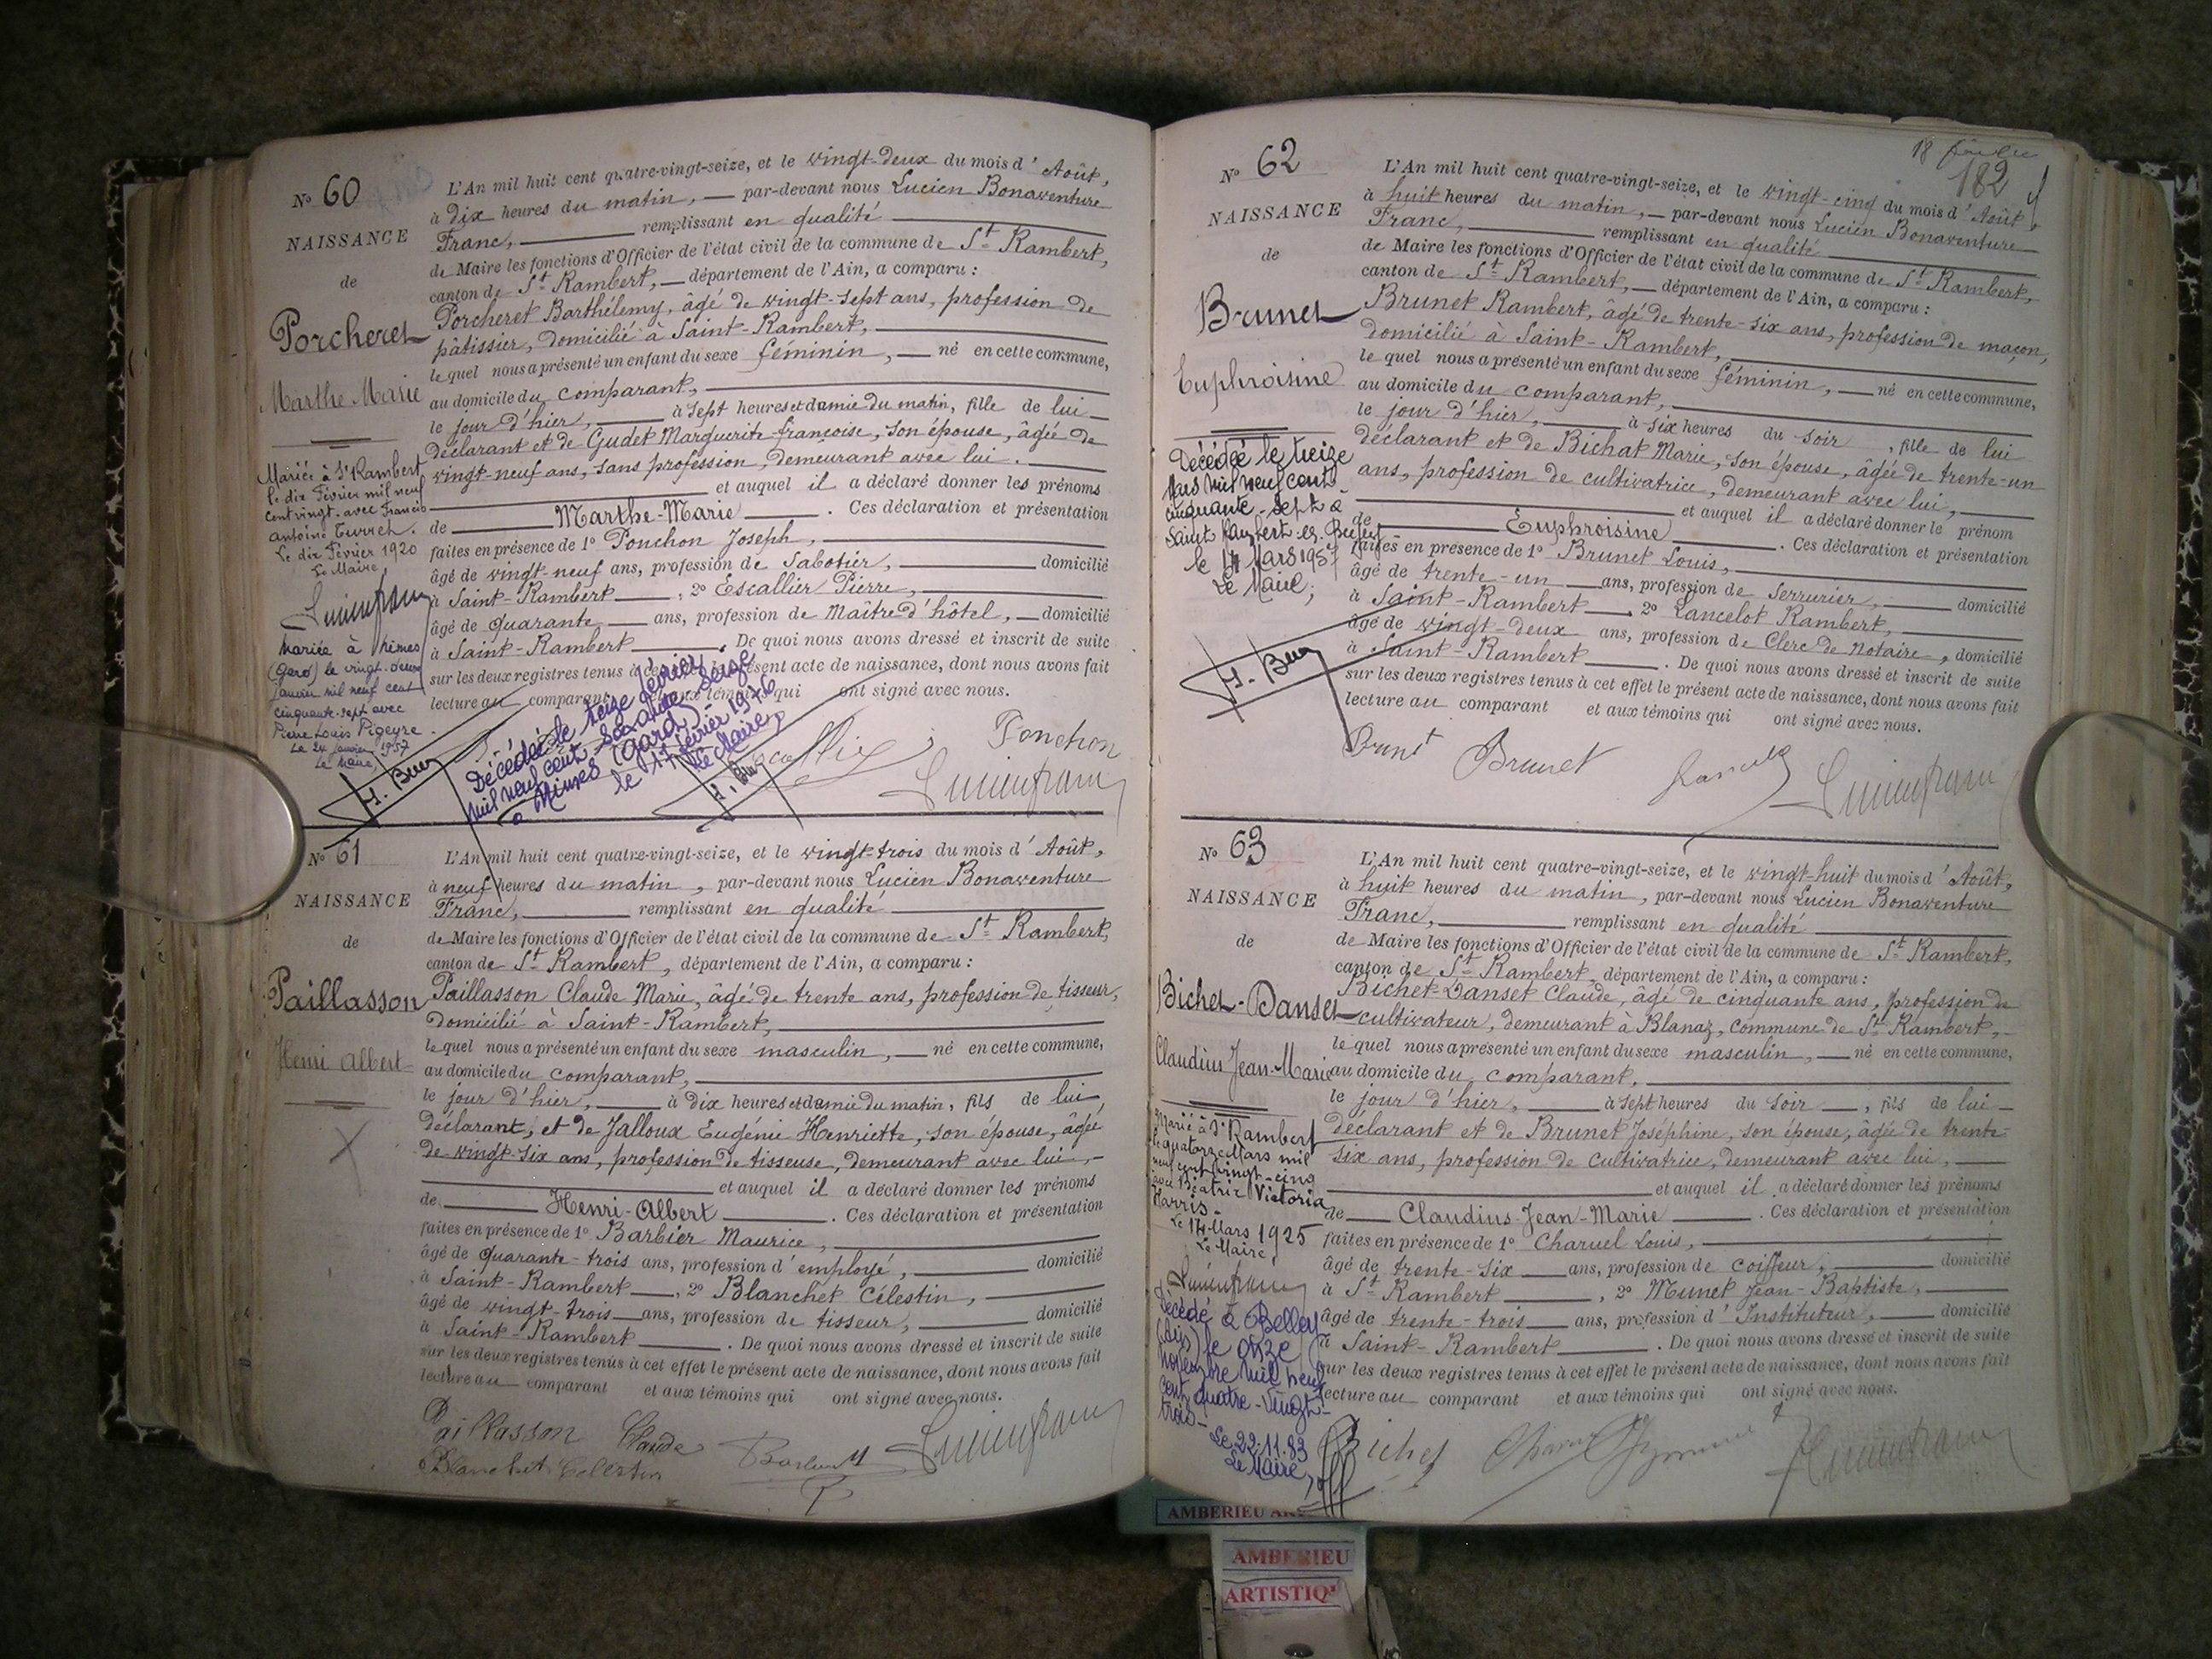 N° 60
NAISSANCE
de
Porcheret
Marthe Marie
Mariée à St Rambert
le dix Février mil neuf
cent vingt avec Francis
antoine
Le dix Février 1920
Le Maire,
Mariée à Nîmes
(Gard) le vingt-deux
janvier mil neuf cent
cinquante-sept avec
Pierre Louis Pigeyre.
Le 24 janvier 1957
Le Maire,
L'An mil huit cent quatre-vingt-seize, et le vingt-deux du mois d'Août,
à dix heures du matin, par-devant nous Lucien Bonaventure
Franc, remplissant en qualité
de Maire les fonctions d'Officier de l'état civil de la commune de St Rambert,
canton de St Rambert, département de l'Ain, a comparu :
Porcheret Barthélemy, âgé de vingt-sept ans, profession de
pâtissier, domicilié à Saint-Rambert,
lequel nous a présenté un enfant du sexe féminin, né en cette commune,
au domicile du comparant,
le jour d'hier, à sept heures et demie du matin, fille de lui
déclarant et de Gudet Marguerite-françoise, son épouse, âgée de
vingt-neuf ans, sans profession, demeurant avec lui.
et auquel il a déclaré donner les prénoms
de Marthe-Marie. Ces déclaration et présentation
faites en présence de 1° Ponchon Joseph,
âgé de vingt-neuf ans, profession de Sabotier, domicilié
à Saint-Rambert, 2° Escallier Pierre,
âgé de quarante ans, profession de Maître d'hôtel, domicilié
à Saint-Rambert. De quoi nous avons dressé et inscrit de suite
sur les deux registres tenus à cet présent acte de naissance, dont nous avons fait
lecture au comparant et aux témoins qui ont signé avec nous.
Décédée le seize février
mil neuf cent soixante seize
à Nîmes (Gard)
le 17 février 1976
Le Maire,
Ponchon
N° 61
NAISSANCE
de
Paillasson
Henri Albert
L'An mil huit cent quatre-vingt-seize, et le vingt-trois du mois d'Août,
à neuf heures du matin, par-devant nous Lucien Bonaventure
Franc, remplissant en qualité
de Maire les fonctions d'Officier de l'état civil de la commune de St Rambert,
canton de St Rambert, département de l'Ain, a comparu :
Paillasson Claude Marie, âgé de trente ans, profession de tisseur,
domicilié à Saint-Rambert,
lequel nous a présenté un enfant du sexe masculin, né en cette commune,
au domicile du comparant,
le jour d'hier, à dix heures et demie du matin, fils de lui
déclarant, et de Jalloux Eugénie Henriette, son épouse, âgée
de vingt-six ans, profession de tisseuse, demeurant avec lui,
et auquel il a déclaré donner les prénoms
de Henri-Albert. Ces déclaration et présentation
faites en présence de 1° Barbier Maurice,
âgé de quarante-trois ans, profession d'employé, domicilié
à Saint-Rambert, 2° Blanchet Célestin,
âgé de vingt-trois ans, profession de tisseur, domicilié
à Saint-Rambert. De quoi nous avons dressé et inscrit de suite
sur les deux registres tenus à cet effet le présent acte de naissance, dont nous avons fait
lecture au comparant et aux témoins qui ont signé avec nous.
Paillasson Claude
Blanchet Célestin
182
N° 62
NAISSANCE
de
Brunet
Euphroisine
Décédée le treize
Mars mil neuf cent
cinquante-sept à
Saint Rambert-en-Bugey
le 14 Mars 1957
Le Maire,
L'An mil huit cent quatre-vingt-seize, et le vingt-cinq du mois d'Août,
à huit heures du matin, par-devant nous Lucien Bonaventure
Franc, remplissant en qualité
de Maire les fonctions d'Officier de l'état civil de la commune de St Rambert,
canton de St Rambert, département de l'Ain, a comparu :
Brunet Rambert, âgé de trente-six ans, profession de maçon,
domicilié à Saint-Rambert,
lequel nous a présenté un enfant du sexe féminin, né en cette commune,
au domicile du comparant,
le jour d'hier, à six heures du soir, fille de lui
déclarant et de Bichat Marie, son épouse, âgée de trente-un
ans, profession de cultivatrice, demeurant avec lui,
et auquel il a déclaré donner le prénom
de Euphroisine. Ces déclaration et présentation
faites en présence de 1° Brunet Louis,
âgé de trente-un ans, profession de Serrurier, domicilié
à Saint-Rambert, 2° Lancelot Rambert,
âgé de vingt-deux ans, profession de Clerc de Notaire, domicilié
à Saint-Rambert. De quoi nous avons dressé et inscrit de suite
sur les deux registres tenus à cet effet le présent acte de naissance, dont nous avons fait
lecture au comparant et aux témoins qui ont signé avec nous.
Brunet
N° 63
NAISSANCE
de
Bichet-Danset
Claudius Jean-Marie
Marié à St Rambert
le quatorze Mars mil
neuf cent vingt-cinq
avec Béatrix Victoria
Harris.
Le 14 Mars 1925
Le Maire,
Décédé à Belley
(Ain) le onze
novembre mil neuf
cent quatre-vingt-
trois-
Le 22.11.83
Le Maire,
L'An mil huit cent quatre-vingt-seize, et le vingt-huit du mois d'Août,
à huit heures du matin, par-devant nous Lucien Bonaventure
Franc, remplissant en qualité
de Maire les fonctions d'Officier de l'état civil de la commune de St Rambert,
canton de St Rambert, département de l'Ain, a comparu :
Bichet-Danset Claude, âgé de cinquante ans, profession de
cultivateur, demeurant à Blanaz, commune de St Rambert,
lequel nous a présenté un enfant du sexe masculin, né en cette commune,
au domicile du comparant,
le jour d'hier, à sept heures du soir, fils de lui
déclarant et de Brunet Joséphine, son épouse, âgée de trente-
six ans, profession de cultivatrice, demeurant avec lui,
et auquel il a déclaré donner les prénoms
de Claudius-Jean-Marie. Ces déclaration et présentation
faites en présence de 1° Charvel Louis,
âgé de trente-six ans, profession de coiffeur, domicilié
à St Rambert, 2° Munet Jean-Baptiste,
âgé de trente-trois ans, profession d'Instituteur, domicilié
à Saint-Rambert. De quoi nous avons dressé et inscrit de suite
sur les deux registres tenus à cet effet le présent acte de naissance, dont nous avons fait
lecture au comparant et aux témoins qui ont signé avec nous.
Bichet
AMBERIEU
AMBERIEU
ARTISTIQ